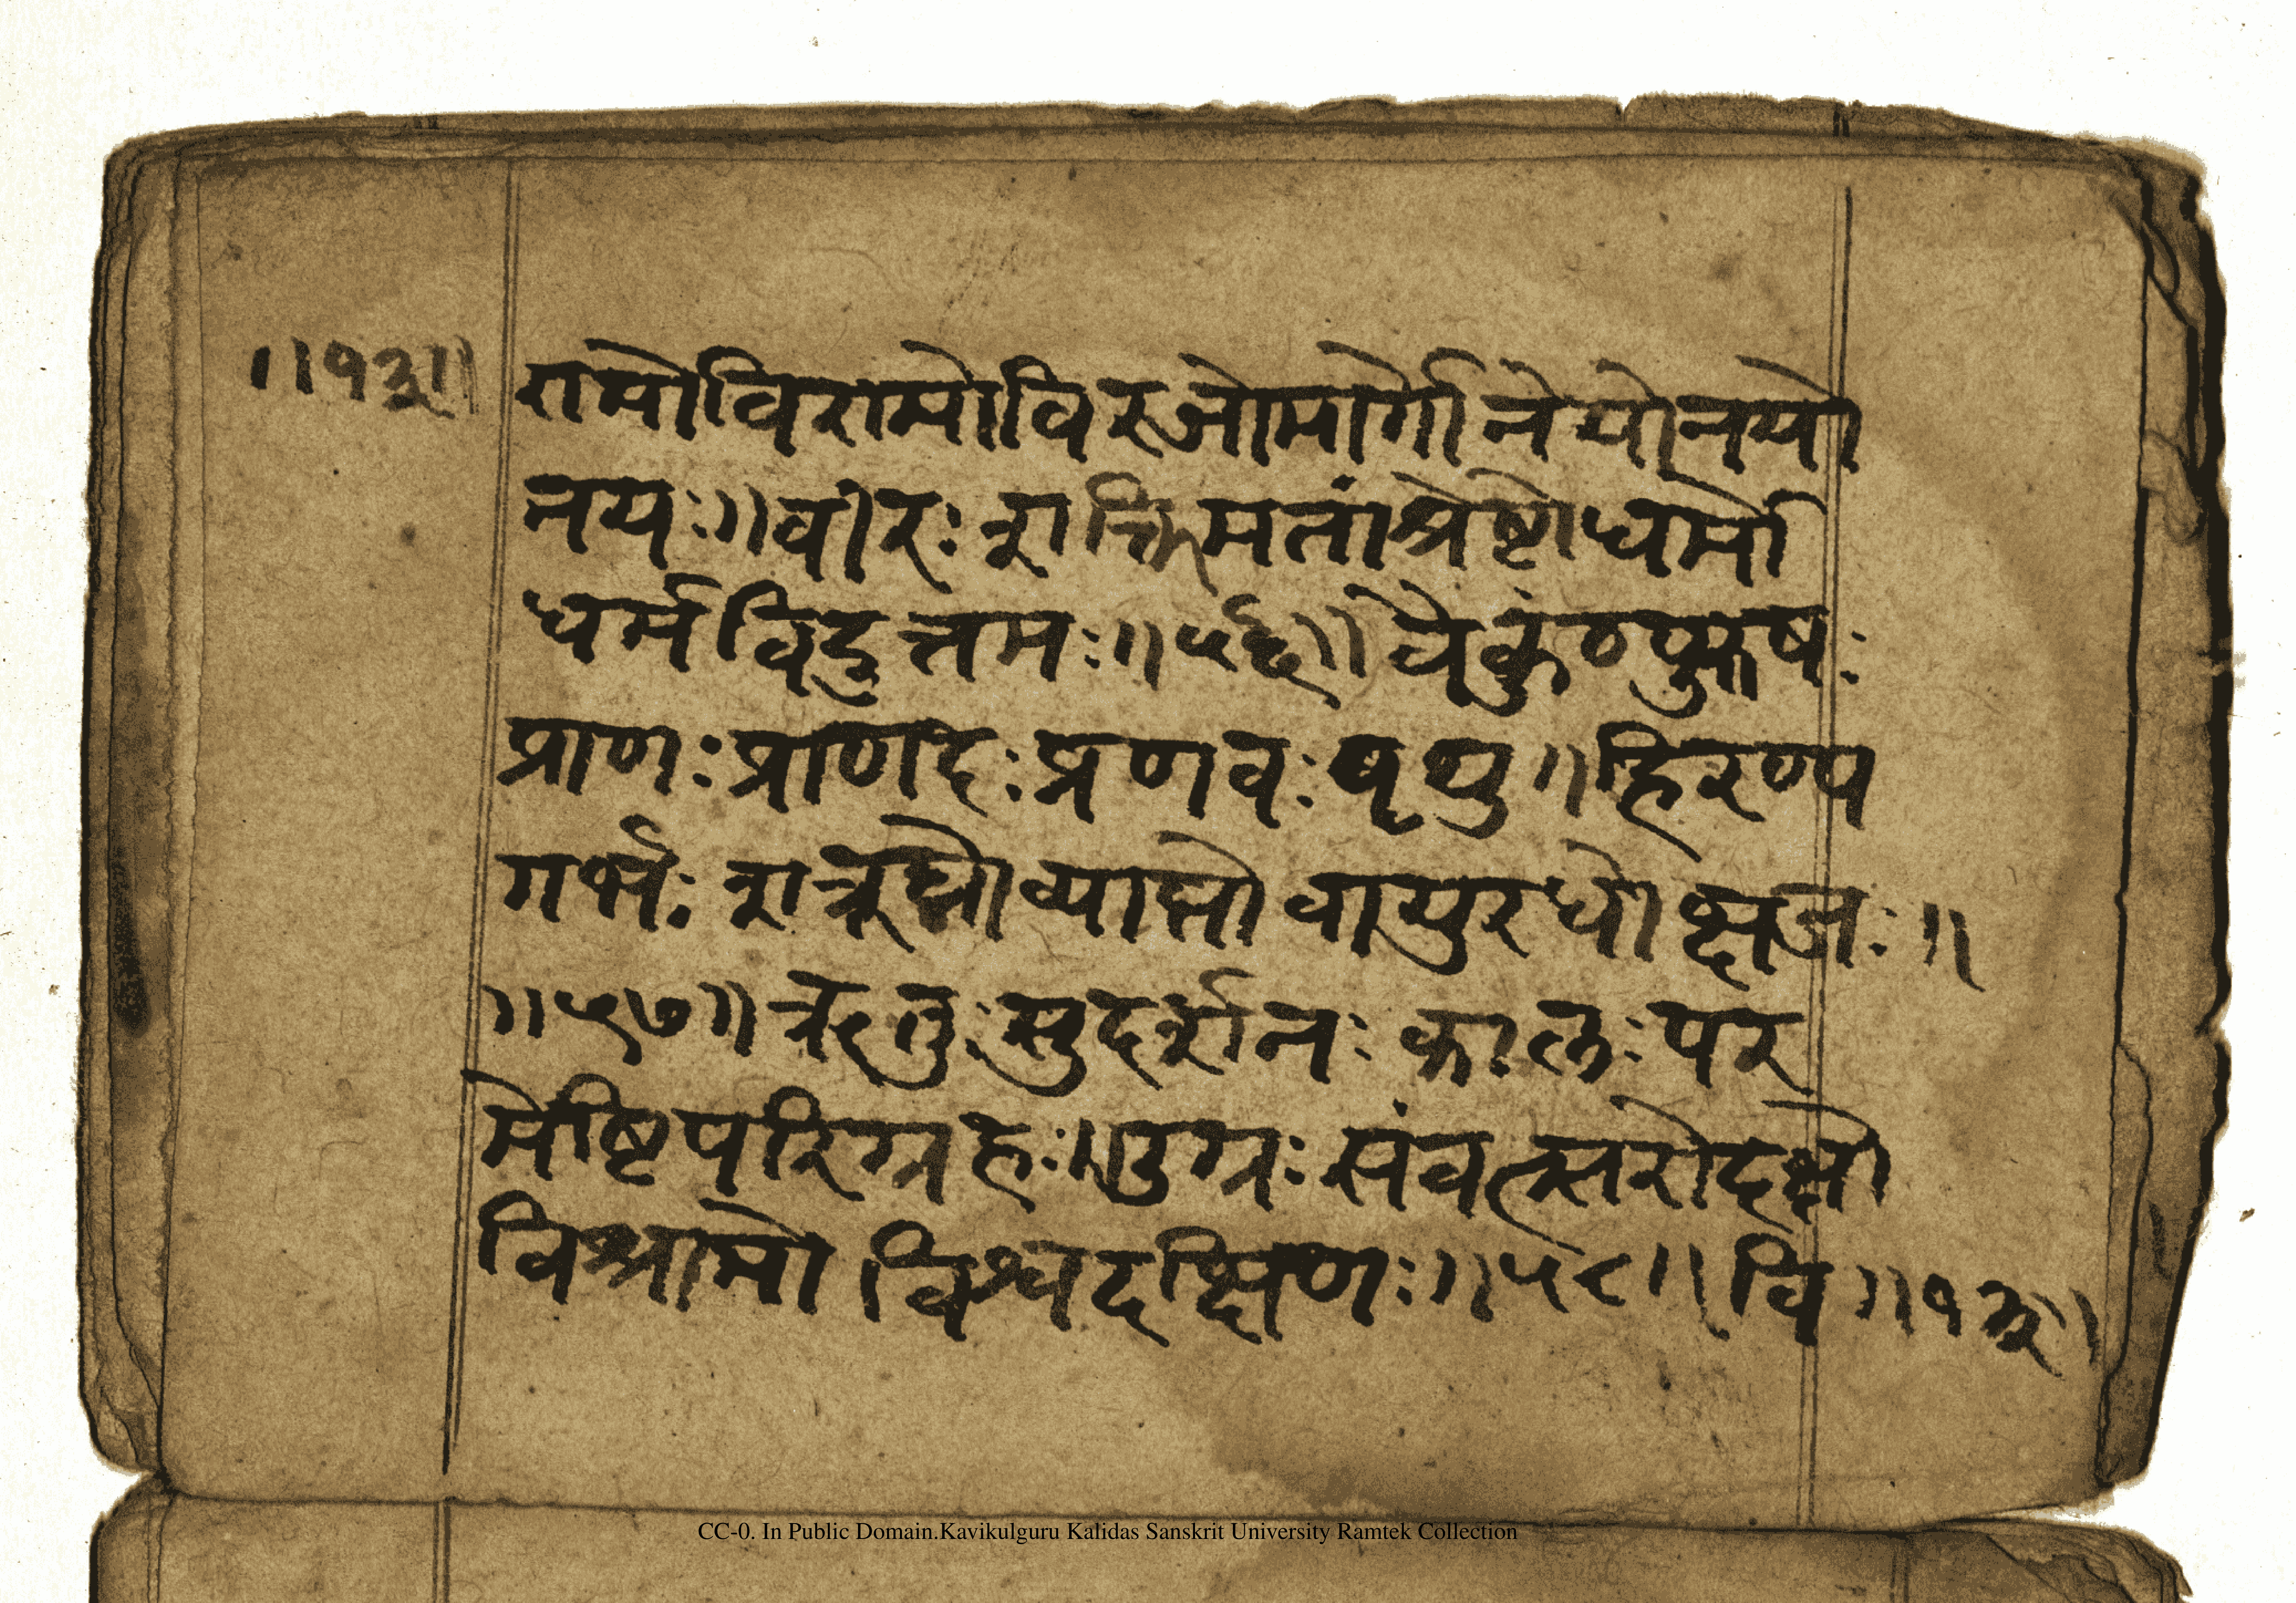 ॥१३॥ रामोविरामोविरजोमार्गोनेयोनयो
नयः॥वीरःशक्तिमतांश्रेष्टोधर्मो
धर्मविदुत्तमः॥५६॥वैकुंठपुरुषः
प्राणःप्राणदःप्रणवःपृथु॥हिरण्य
गर्भः शत्रूघ्नोव्याप्तोवायुरधोक्षजः॥
॥५७॥ऋतुःसुदर्शनःकालःपर
मेष्टिपरिग्रहः॥उग्रःसंवत्सरोदक्षो
विश्रामो।विश्वदक्षिणः॥५८॥वि॥१३॥
CC-0. In Public Domain.Kavikulguru Kalidas Sanskrit University Ramtek Collection